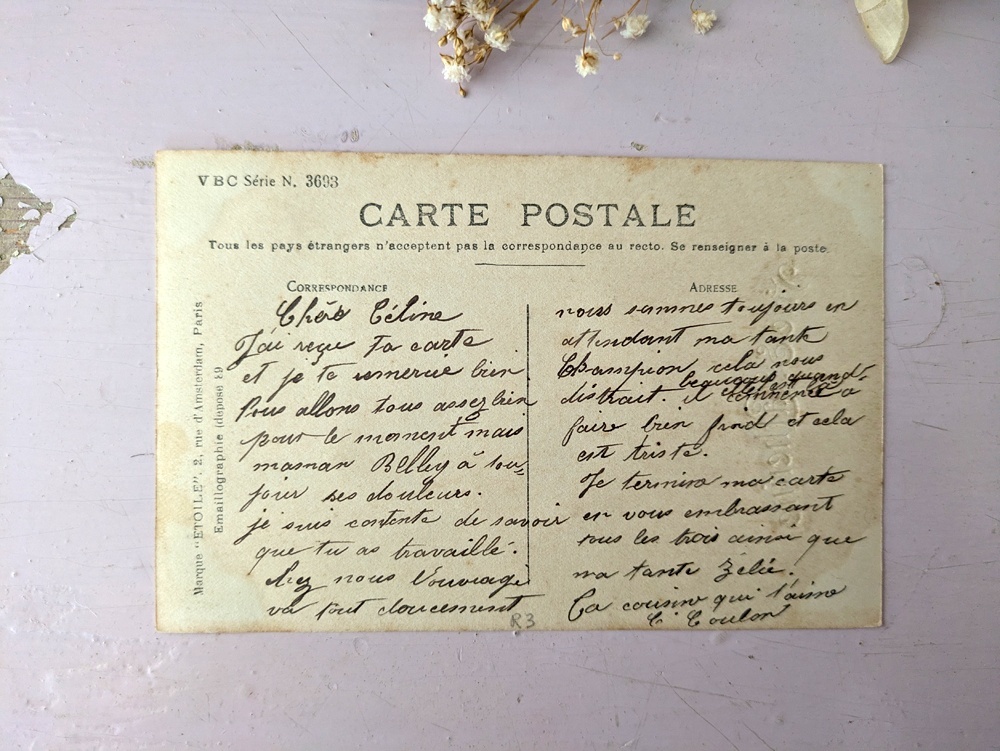 VBC Série N. 3693
CARTE POSTALE
Tous les pays étrangers n'acceptent pas la correspondance au recto. Se renseigner à la poste.
CORRESPONDANCE
Chère Céline
J'ai reçu ta carte
et je te remercie bien
Nous allons tous assez bien
pour le moment mais
maman Belley à tou-
jour ses douleurs.
je suis contente de savoir
que tu as travaillé.
chez nous l'ouvrage
va tout doucement
ADRESSE
nous sommes toujours en
attendant ma tante
Champion cela nous
beaucoup quand
distrait. il commence à
faire bien froid et cela
est triste.
Je termine ma carte
en vous embrassant
tous les trois ainsi que
ma tante Zélie.
Ta cousine qui t'aime
C. Coulon
Marque "ETOILE". 2, rue d'Amsterdam, Paris
Emaillographie (déposé 89
R3